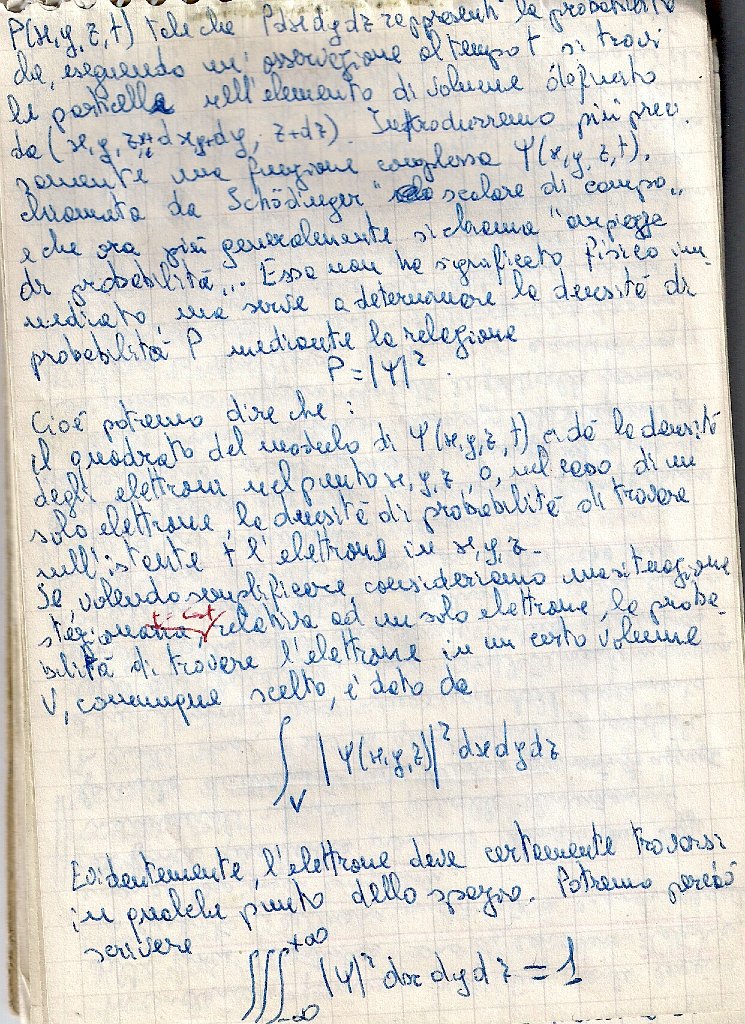 P(x,y,z,t) tale che Pdxdydz rappresenti la probabilità
che, eseguendo un'osservazione al tempo t si trovi
la particella nell'elemento di volume
da (x, y, z, x+dx, y+dy, z+dz). Introdurremo più prec.
samente una funzione complessa Ψ(x,y,z,t),
chiamata da Schödinger "scalare di campo„
e che ora più generalmente si chiama "ampiezza
di probabilità„. Essa non ha significato fisico im-
mediato, ma serve a determinare la densità di
probabilità P mediante la relazione
P = |Ψ|².
Cioè potremo dire che :
il quadrato del modulo di Ψ(x,y,z,t) ci dà la densità
degli elettroni nel punto x,y,z, o, nel caso di un
solo elettrone, la densità di probabilità di trovare
nell'istante t l'elettrone in x,y,z.
Se, volendo semplificare, consideriamo una situazione
stazionaria, relativa ad un solo elettrone, la proba-
bilità di trovare l'elettrone in un certo volume
V, comunque scelto, è dato da
∫_V |Ψ(x,y,z)|² dxdydz
Evidentemente, l'elettrone deve certamente trovarsi
in qualche punto dello spazio. Potremo perciò
scrivere
∫∫∫_-∞^+∞ |Ψ|² dx dy dz = 1